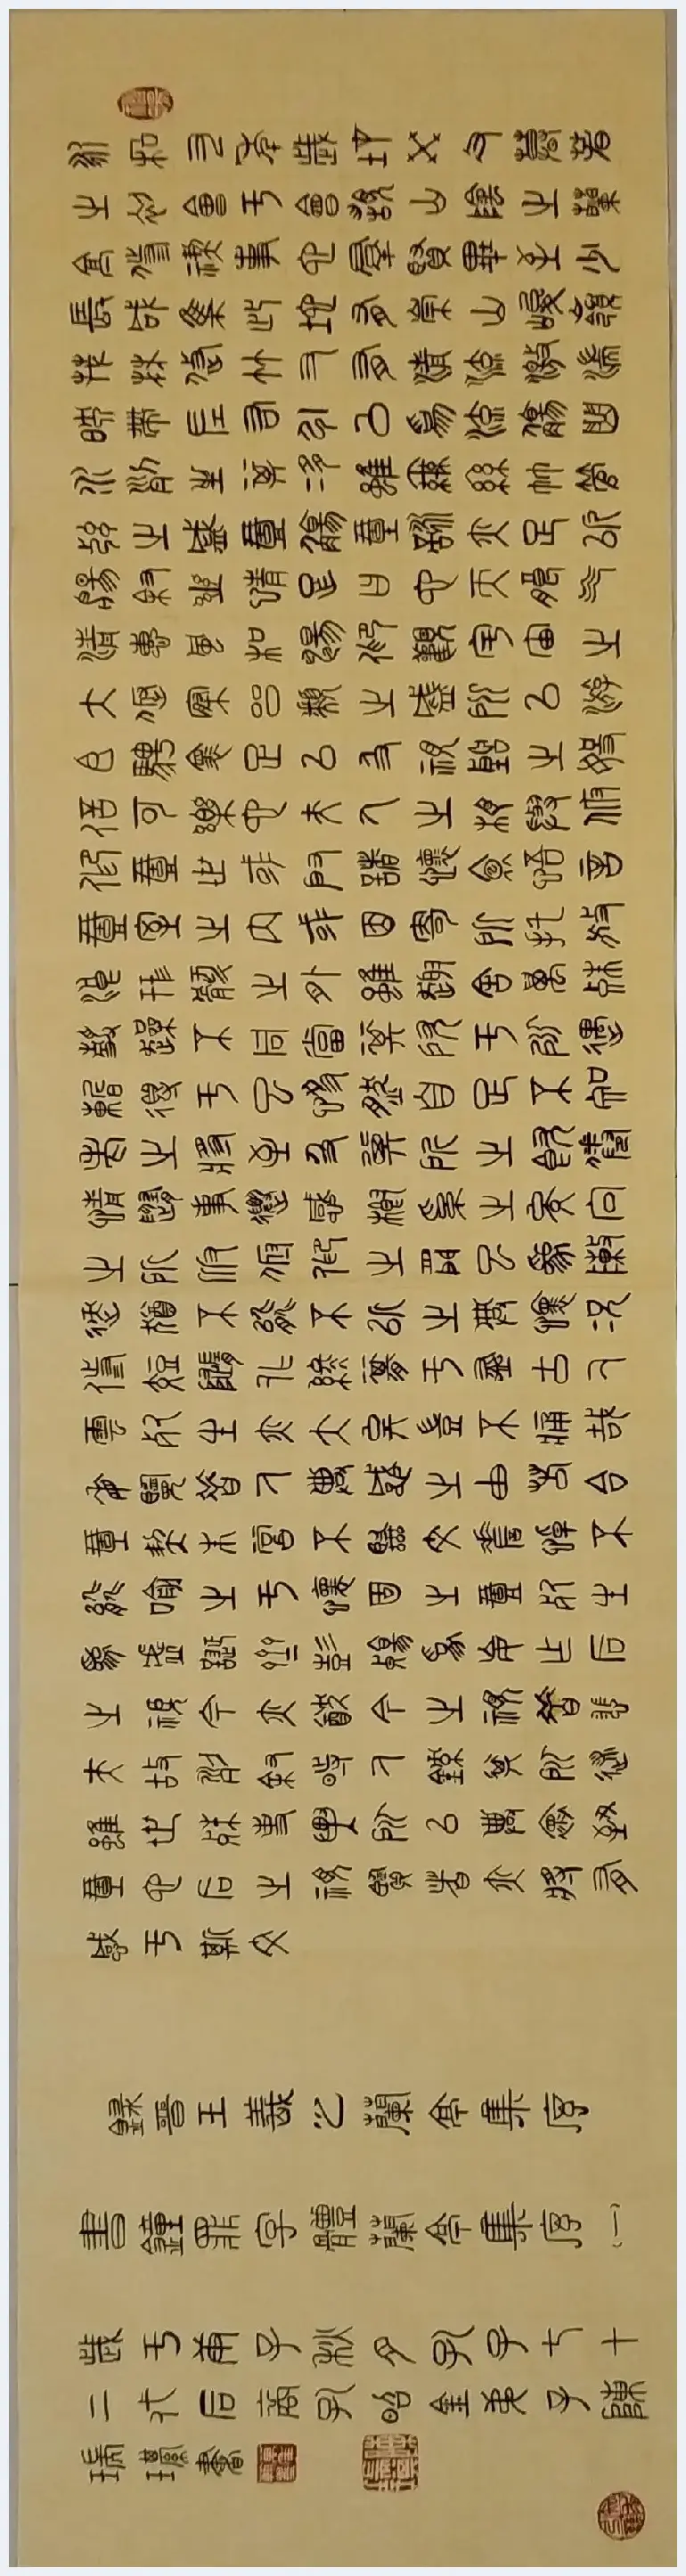 永和九年歲在癸丑暮春
之初會于會稽山陰之蘭
亭修禊事也群賢畢至少
長咸集此地有崇山峻領
茂林修竹又有清流激湍
映帶左右引以為流觴曲
水列坐其次雖無絲竹管
弦之盛一觴一詠亦足以
暢敘幽情是日也天朗气
清惠風和暢仰觀宇宙之
大俯察品類之盛所以游
目騁懷足以極視聽之娛
信可樂也夫人之相與俯
仰一世或取諸懷抱悟言
一室之內或因寄所托放
浪形骸之外雖趣舍萬殊
靜躁不同當其欣于所遇
暫得于己快然自足不知
老之將至及其所之既倦
情隨事遷感慨係之矣向
之所欣俯仰之間已為陳
跡猶不能不以之興懷況
修短隨化終期于盡古人
雲死生亦大矣豈不痛哉
每覽昔人興感之由若合
一契未嘗不臨文嗟悼不
能喻之于懷固知一死生
為虛誕齊彭殤為妄作后
之視今亦猶今之視昔悲
夫故列敘時人錄其所述
雖世殊事異所以興懷致
一也后之視覽者亦將有
感于斯文
錄晉王羲之蘭亭集序
書鐘鼎字體蘭亭集序(一)
歲于子秋月孔子七十
二代后裔孔昭金子陳
瑞書